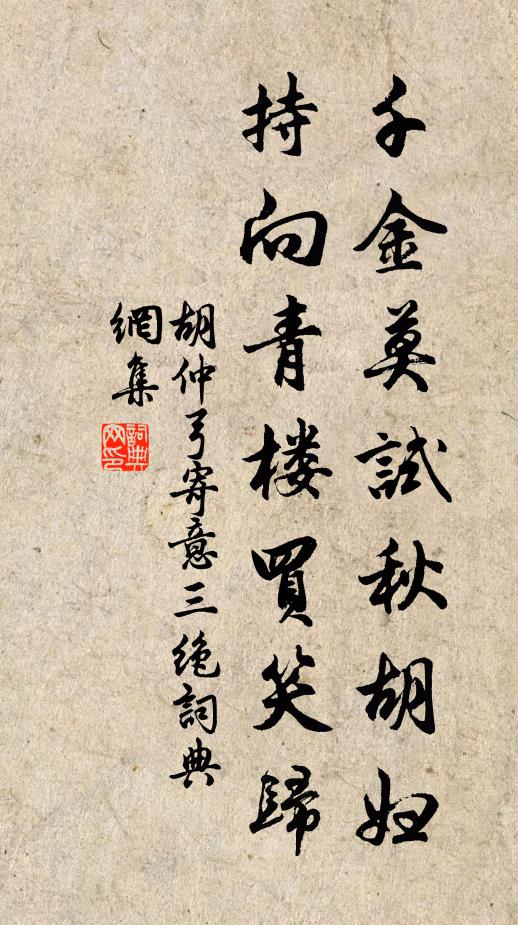 千金莫試秋胡妇
持向青楼買笑歸
胡仲弓寄意三绝詞典
網集
詞典网印